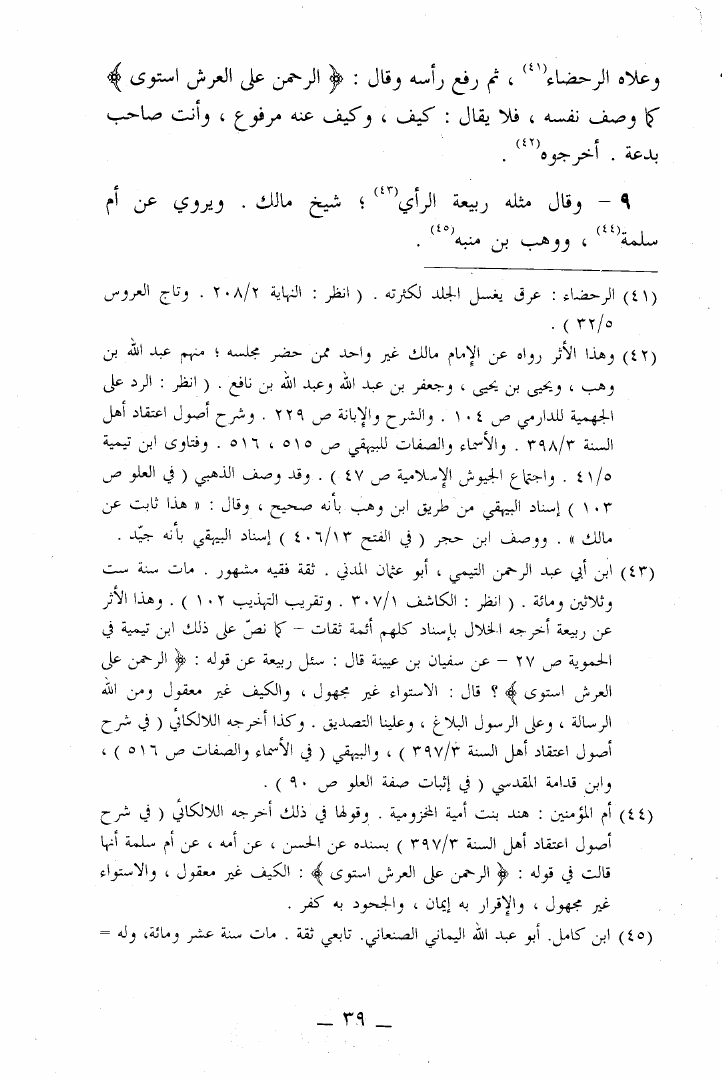 وعلاه الرحضاء(٤١) ، ثم رفع رأسه وقال : ﴿ الرحمن على العرش استوى ﴾
كما وصف نفسه ، فلا يقال : كيف ، وكيف عنه مرفوع ، وأنت صاحب
بدعة . أخرجوه(٤٢) .
٩ – وقال مثله ربيعة الرأي(٤٣) ؛ شيخ مالك . ويروي عن أم
سلمة(٤٤) ، ووهب بن منبه(٤٥) .
(٤١) الرحضاء : عرق يغسل الجلد لكثرته . ( انظر : النهاية ٢٠٨/٢ . وتاج العروس
٣٢/٥ ) .
(٤٢) وهذا الأثر رواه عن الإمام مالك غير واحد ممن حضر مجلسه ؛ منهم عبد الله بن
وهب ، ويحيى بن يحيى ، وجعفر بن عبد الله وعبد الله بن نافع . ( انظر : الرد على
الجهمية للدارمي ص ١٠٤ . والشرح والإبانة ص ٢٢٩ . وشرح أصول اعتقاد أهل
السنة ٣٩٨/٣ . والأسماء والصفات للبيهقي ص ٥١٥ ، ٥١٦ . وفتاوى ابن تيمية
٤١/٥ . واجتماع الجيوش الإسلامية ص ٤٧ ) . وقد وصف الذهبي ( في العلو ص
١٠٣ ) إسناد البيهقي من طريق ابن وهب بأنه صحيح ، وقال : « هذا ثابت عن
مالك » . ووصف ابن حجر ( في الفتح ٤٠٦/١٣ ) إسناد البيهقي بأنه جيّد .
(٤٣) ابن أبي عبد الرحمن التيمي ، أبو عثمان المدني . ثقة فقيه مشهور . مات سنة ست
وثلاثين ومائة . ( انظر : الكاشف ٣٠٧/١ . وتقريب التهذيب ١٠٢ ) . وهذا الأثر
عن ربيعة أخرجه الخلال بإسناد كلهم أئمة ثقات – كما نصّ على ذلك ابن تيمية في
الحموية ص ٢٧ – عن سفيان بن عيينة قال : سئل ربيعة عن قوله : ﴿ الرحمن على
العرش استوى ﴾ ؟ قال : الاستواء غير مجهول ، والكيف غير معقول ومن الله
الرسالة ، وعلى الرسول البلاغ ، وعلينا التصديق . وكذا أخرجه اللالكائي ( في شرح
أصول اعتقاد أهل السنة ٣٩٧/٣ ) ، والبيهقي ( في الأسماء والصفات ص ٥١٦ ) ،
وابن قدامة المقدسي ( في إثبات صفة العلو ص ٩٠ ) .
(٤٤) أم المؤمنين : هند بنت أمية المخزومية . وقولها في ذلك أخرجه اللالكائي ( في شرح
أصول اعتقاد أهل السنة ٣٩٧/٣ ) بسنده عن الحسن ، عن أمه ، عن أم سلمة أنها
قالت في قوله : ﴿ الرحمن على العرش استوى ﴾ : الكيف غير معقول ، والاستواء
غير مجهول ، والإقرار به إيمان ، والجحود به كفر .
(٤٥) ابن كامل. أبو عبد الله اليماني الصنعاني. تابعي ثقة . مات سنة عشر ومائة، وله =
– ٣٩ –